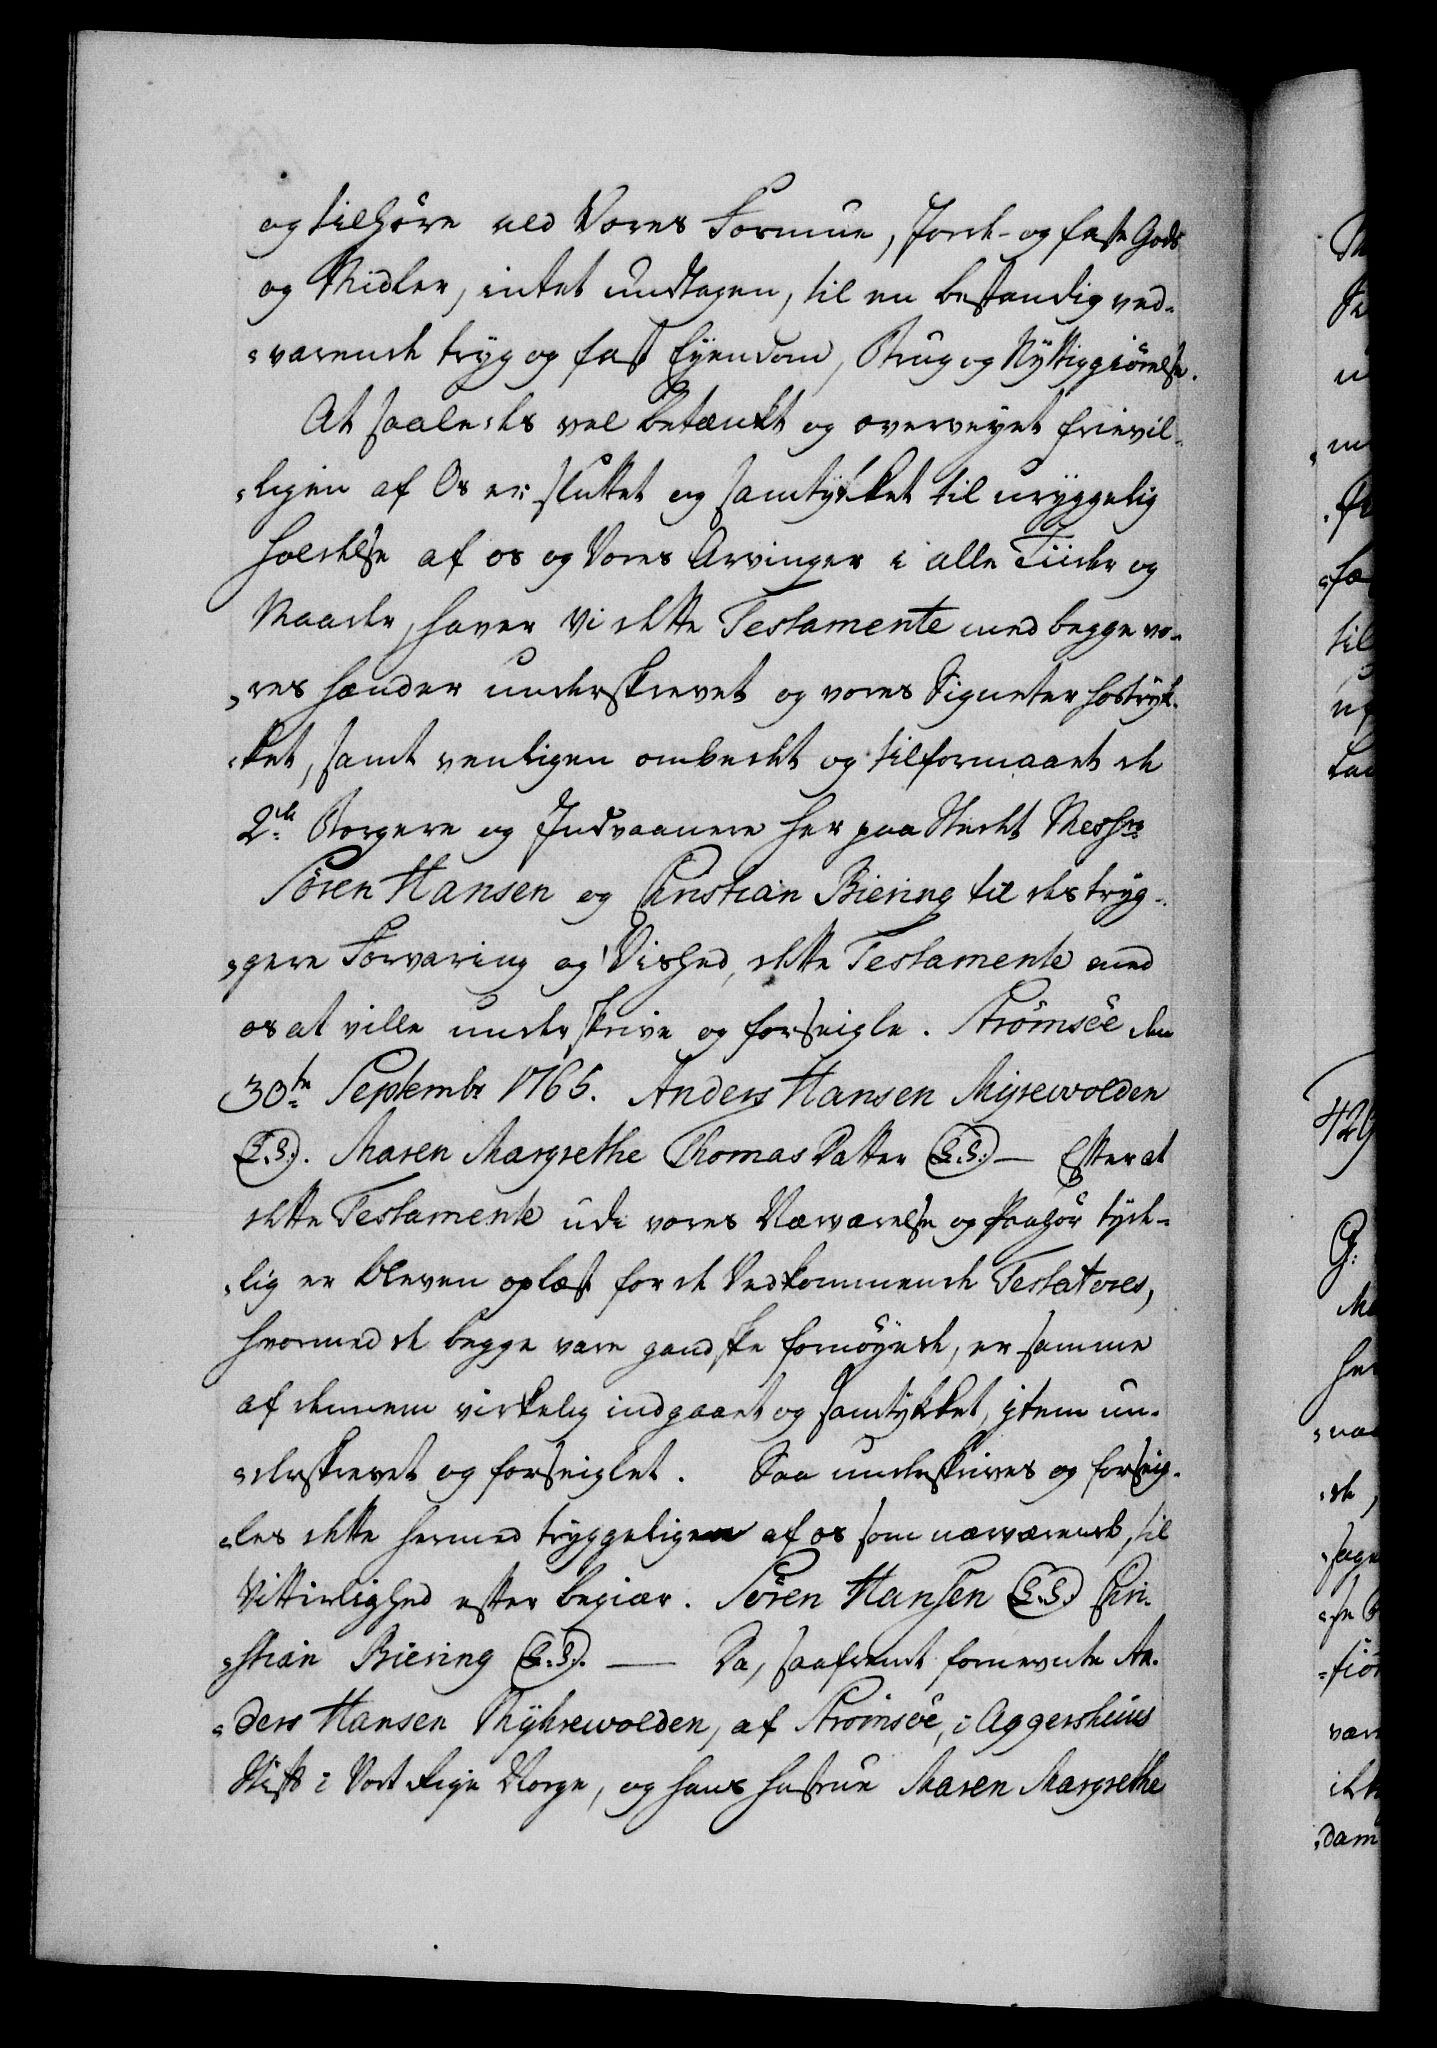 og tilhöre ald Vores Formue, Jord- og faste Gods
og Midler, intet undtagen, til en bestandig ved-
varende tryg og fast Eyendom, Brug og Nyttiggiörelse.
At saaledes vel betænkt og overveyet frievil-
ligen af Os er sluttet og samtykket til uryggelig
holdelse af os og Vores Arvinger i alle Tiider og
Maader, haver Vi dette Testamente med begge vo-
res hænder underskrevet og vores Signeter hostryk-
ket, samt venligen ombedet og tilformaaet de
2de Borgere og Indvaanere her paa Stedet Messrs
Sören Hansen og Christian Biering til des tryg-
gere Forvaring og Vished, dette Testamente med
os at ville underskrive og forseigle. Strömsöe den
30te Septembr 1765. Anders Hansen Myrewolden
(L.S.). Maren Margrethe Thomas Datter (L.S.) — Efter at
dette Testamente udi vores Nærværelse og Paahör tyde-
lig er bleven oplæst for de Vedkommende Testatores,
hvormed de begge vare gandske fornöyede, er samme
af dennem virkelig indgaaet og samtykket, item un-
derskrevet og forseiglet. Saa underskrives og forseig-
les dette hermed tryggeligen af os som nærværende, til
Vitterlighed efter begiær. Sören Hansen (L.S.) Chri-
stian Biering (L.S.). — Da, saafremt fornevnte An-
ders Hansen Myhrewolden, af Strömsöe, i Aggershuus
Stift i Vort Rige Norge, og hans hustrue Maren Margrethe